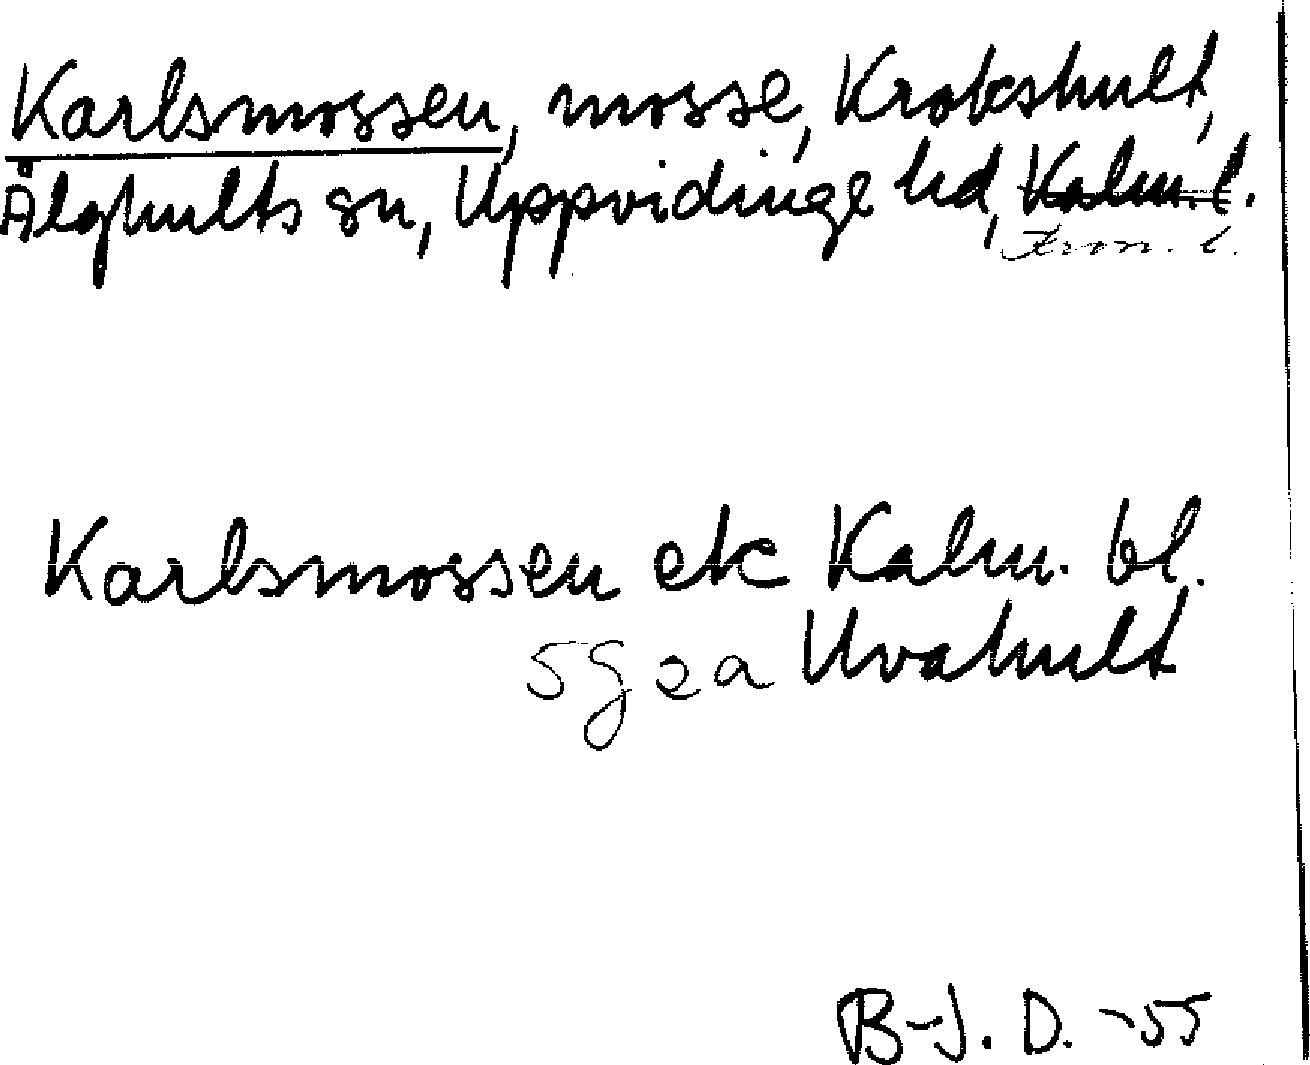 Karlsmossen, mosse, Krokshult,
Älghults sn, Uppvidinge hd, Kalm. l.
Kron. l.
Karlsmossen ek Kalm. bl.
5g 2a Uvahult
B-J. D. -55